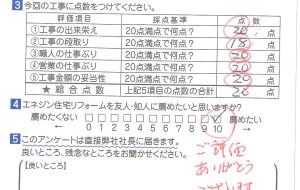 3 今回の工事に点数をつけてください。
評価項目 採点基準 点数
①工事の出来栄え 20点満点で何点? 20 点
②工事の段取り 20点満点で何点? 18 点
③職人の仕事ぶり 20点満点で何点? 20 点
④営業の仕事ぶり 20点満点で何点? 20 点
⑤工事金額の妥当性 20点満点で何点? 20 点
★総合点数 上記5項目の点数の合計 点
4 エネジン住宅リフォームを友人・知人に薦めたいと思いますか?
薦めたくない 薦めたい
0 1 2 3 4 5 6 7 8 9 10
5 このアンケートは直接弊社社長に届きます。
良いところ、残念なところをお聞かせください。
【良いところ】
ご評価
ありがとう
ございます